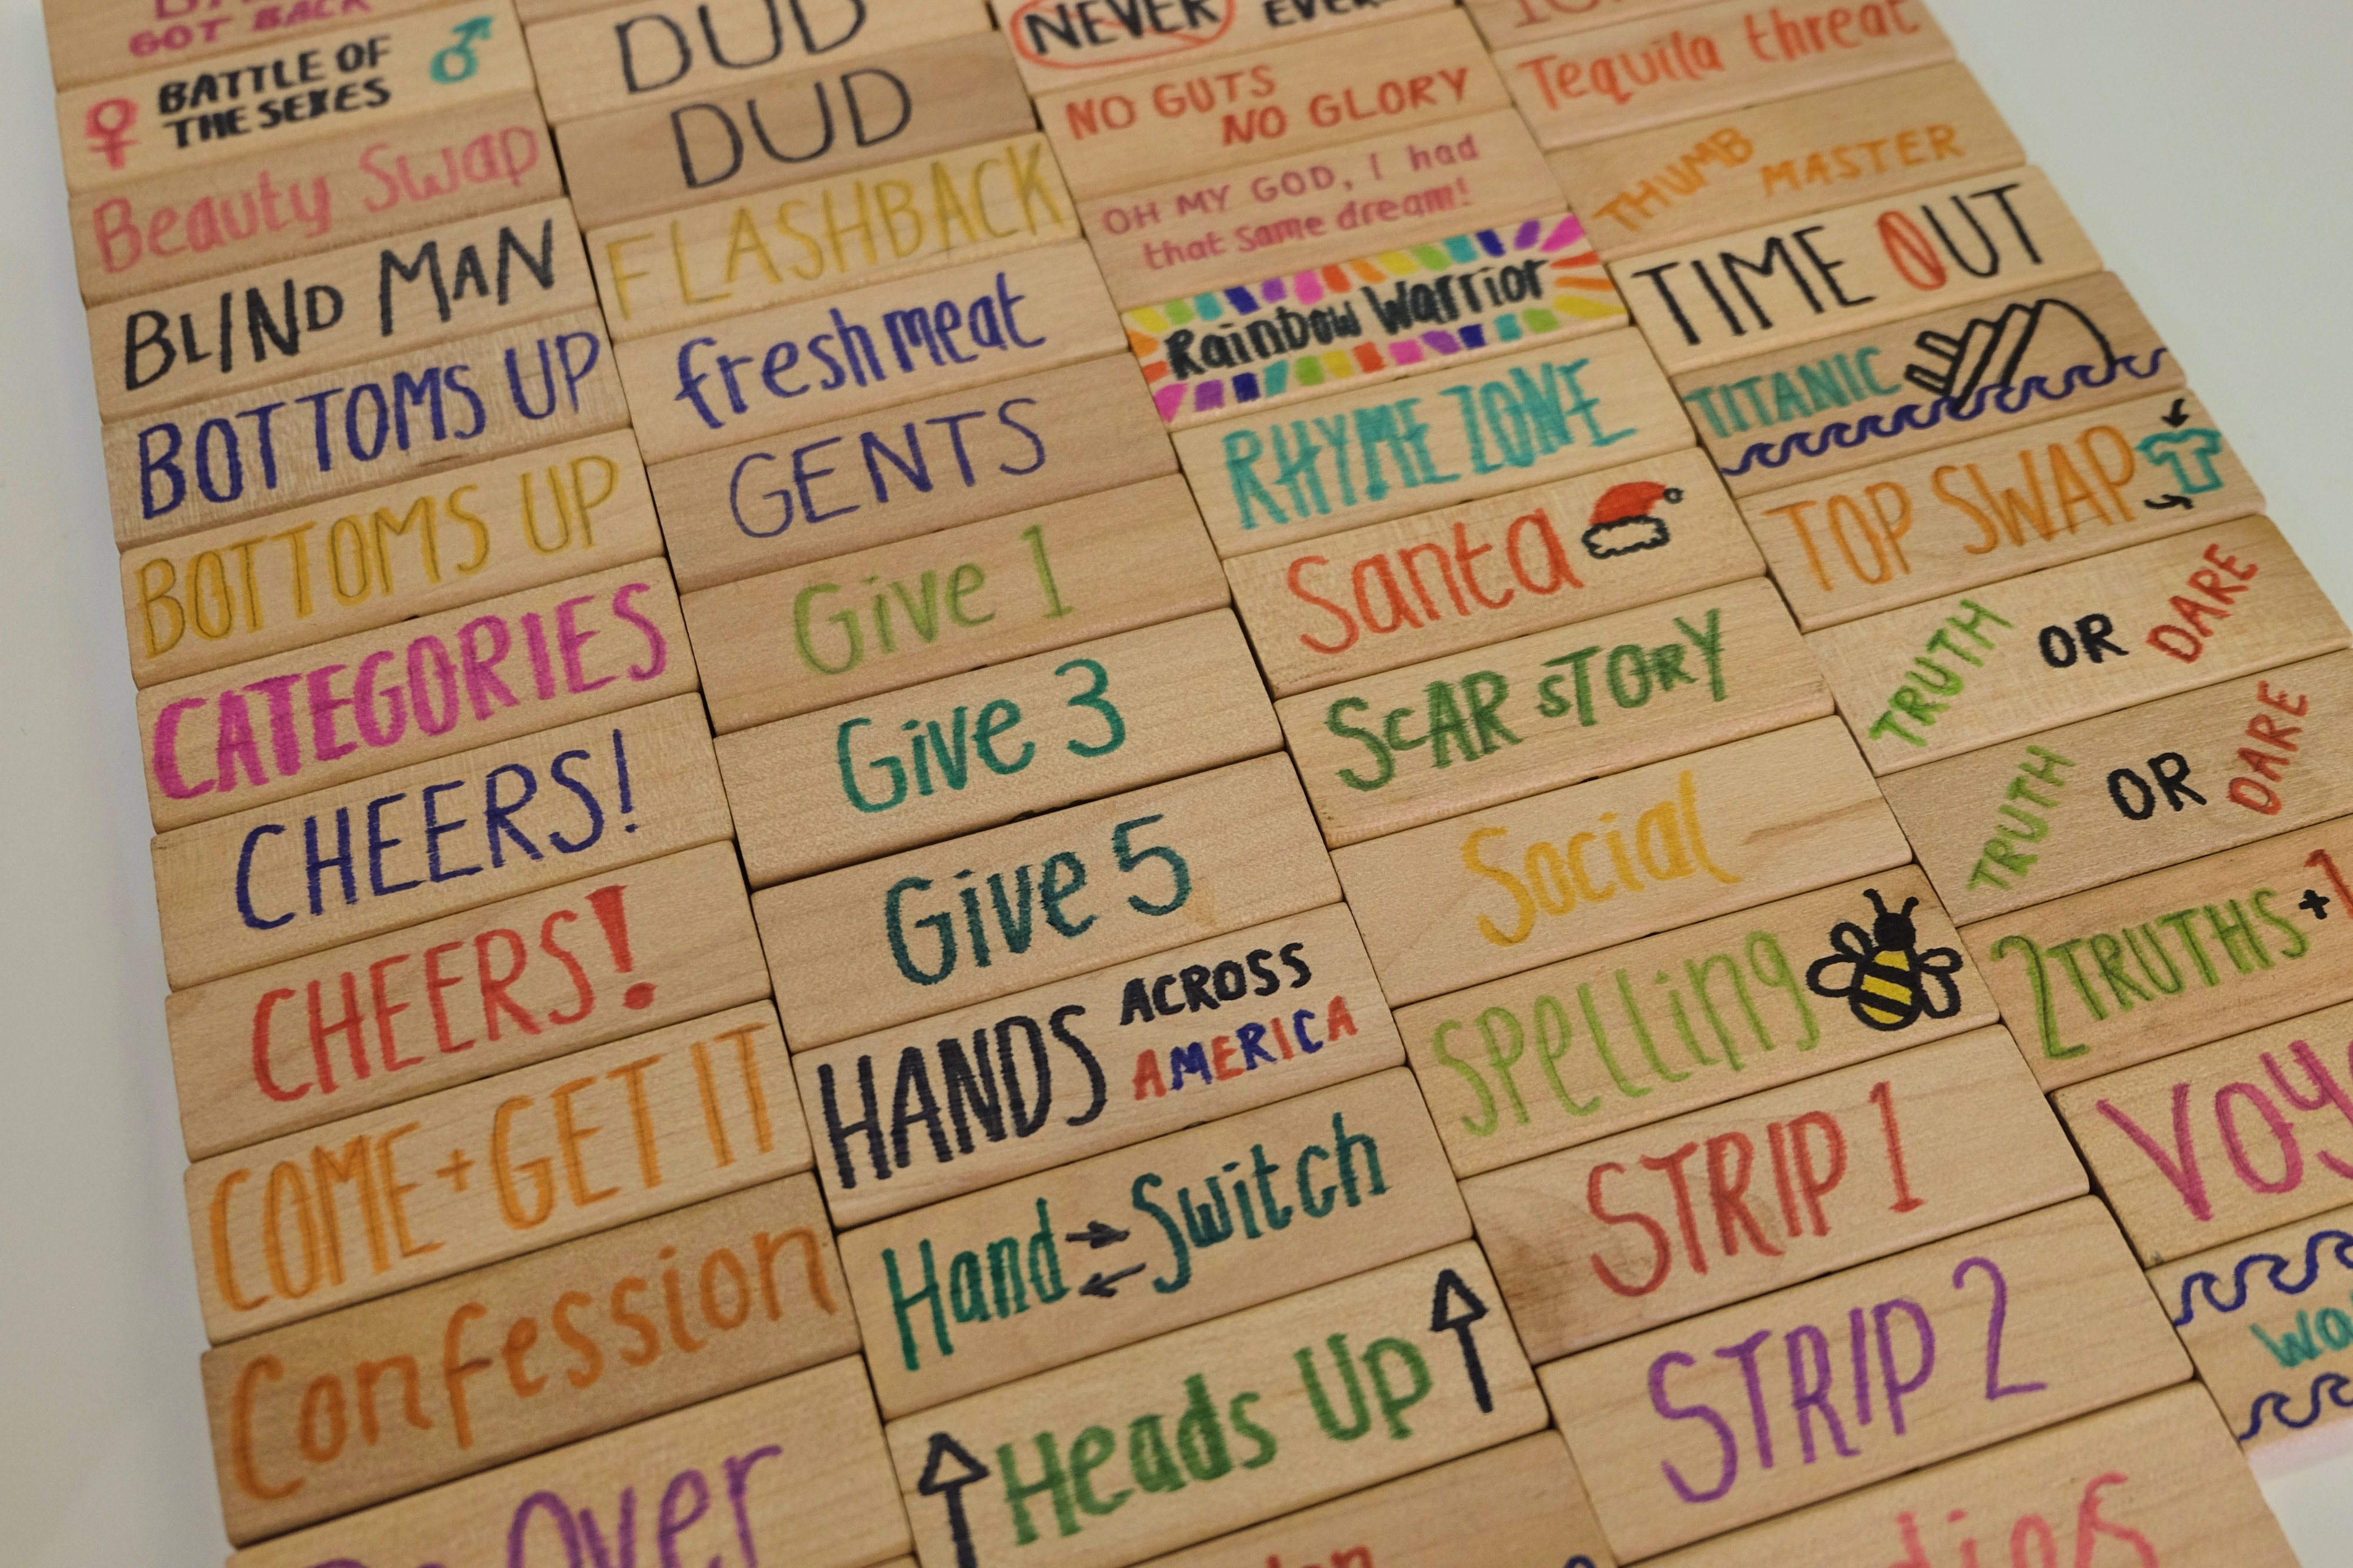 GOT BACK
BATTLE OF
THE SEXES
Beauty Swap
BLIND MAN
BOTTOMS UP
BOTTOMS UP
CATEGORIES
CHEERS!
CHEERS!
COME + GET IT
Confession
Over
DUD
DUD
FLASHBACK
fresh meat
GENTS
Give 1
Give 3
Give 5
HANDS ACROSS
AMERICA
Hand Switch
Heads Up
NEVER EVER
NO GUTS
NO GLORY
OH MY GOD, I had
that same dream!
Rainbow Warrior
RHYME ZONE
Santa
SCAR STORY
Social
Spelling
STRIP 1
STRIP 2
Tequila threat
THUMB MASTER
TIME OUT
TITANIC
TOP SWAP
TRUTH OR DARE
TRUTH OR DARE
2 TRUTHS + 1